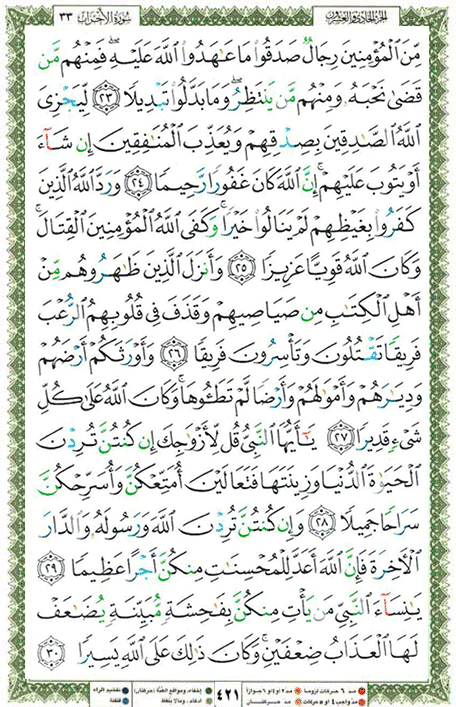 سُورَةُ الأَحْزَابِ ٣٣
الجزء الحادي والعشرون
مِّنَ ٱلْمُؤْمِنِينَ رِجَالٌ صَدَقُوا۟ مَا عَـٰهَدُوا۟ ٱللَّهَ عَلَيْهِ ۖ فَمِنْهُم مَّن
قَضَىٰ نَحْبَهُۥ وَمِنْهُم مَّن يَنتَظِرُ ۖ وَمَا بَدَّلُوا۟ تَبْدِيلًا ٢٣ لِّيَجْزِىَ
ٱللَّهُ ٱلصَّـٰدِقِينَ بِصِدْقِهِمْ وَيُعَذِّبَ ٱلْمُنَـٰفِقِينَ إِن شَآءَ
أَوْ يَتُوبَ عَلَيْهِمْ ۚ إِنَّ ٱللَّهَ كَانَ غَفُورًا رَّحِيمًا ٢٤ وَرَدَّ ٱللَّهُ ٱلَّذِينَ
كَفَرُوا۟ بِغَيْظِهِمْ لَمْ يَنَالُوا۟ خَيْرًا ۚ وَكَفَى ٱللَّهُ ٱلْمُؤْمِنِينَ ٱلْقِتَالَ ۚ
وَكَانَ ٱللَّهُ قَوِيًّا عَزِيزًا ٢٥ وَأَنزَلَ ٱلَّذِينَ ظَـٰهَرُوهُم مِّنْ
أَهْلِ ٱلْكِتَـٰبِ مِن صَيَاصِيهِمْ وَقَذَفَ فِى قُلُوبِهِمُ ٱلرُّعْبَ
فَرِيقًا تَقْتُلُونَ وَتَأْسِرُونَ فَرِيقًا ٢٦ وَأَوْرَثَكُمْ أَرْضَهُمْ
وَدِيَـٰرَهُمْ وَأَمْوَٰلَهُمْ وَأَرْضًا لَّمْ تَطَـُٔوهَا ۚ وَكَانَ ٱللَّهُ عَلَىٰ كُلِّ
شَىْءٍ قَدِيرًا ٢٧ يَـٰٓأَيُّهَا ٱلنَّبِىُّ قُل لِّأَزْوَٰجِكَ إِن كُنتُنَّ تُرِدْنَ
ٱلْحَيَوٰةَ ٱلدُّنْيَا وَزِينَتَهَا فَتَعَالَيْنَ أُمَتِّعْكُنَّ وَأُسَرِّحْكُنَّ
سَرَاحًا جَمِيلًا ٢٨ وَإِن كُنتُنَّ تُرِدْنَ ٱللَّهَ وَرَسُولَهُۥ وَٱلدَّارَ
ٱلْـَٔاخِرَةَ فَإِنَّ ٱللَّهَ أَعَدَّ لِلْمُحْسِنَـٰتِ مِنكُنَّ أَجْرًا عَظِيمًا ٢٩
يَـٰنِسَآءَ ٱلنَّبِىِّ مَن يَأْتِ مِنكُنَّ بِفَـٰحِشَةٍ مُّبَيِّنَةٍ يُضَـٰعَفْ
لَهَا ٱلْعَذَابُ ضِعْفَيْنِ ۚ وَكَانَ ذَٰلِكَ عَلَى ٱللَّهِ يَسِيرًا ٣٠
مد ٦ حركات لزوماً مد ٢ او ٤ او ٦ جوازاً
مد واجب ٤ او ٥ حركات مد حركتان
٤٢١
إخفاء، ومواقع الغُنَّة (حركتان) تفخيم الراء
ادغام، وما لا يُلفَظ قلقلة